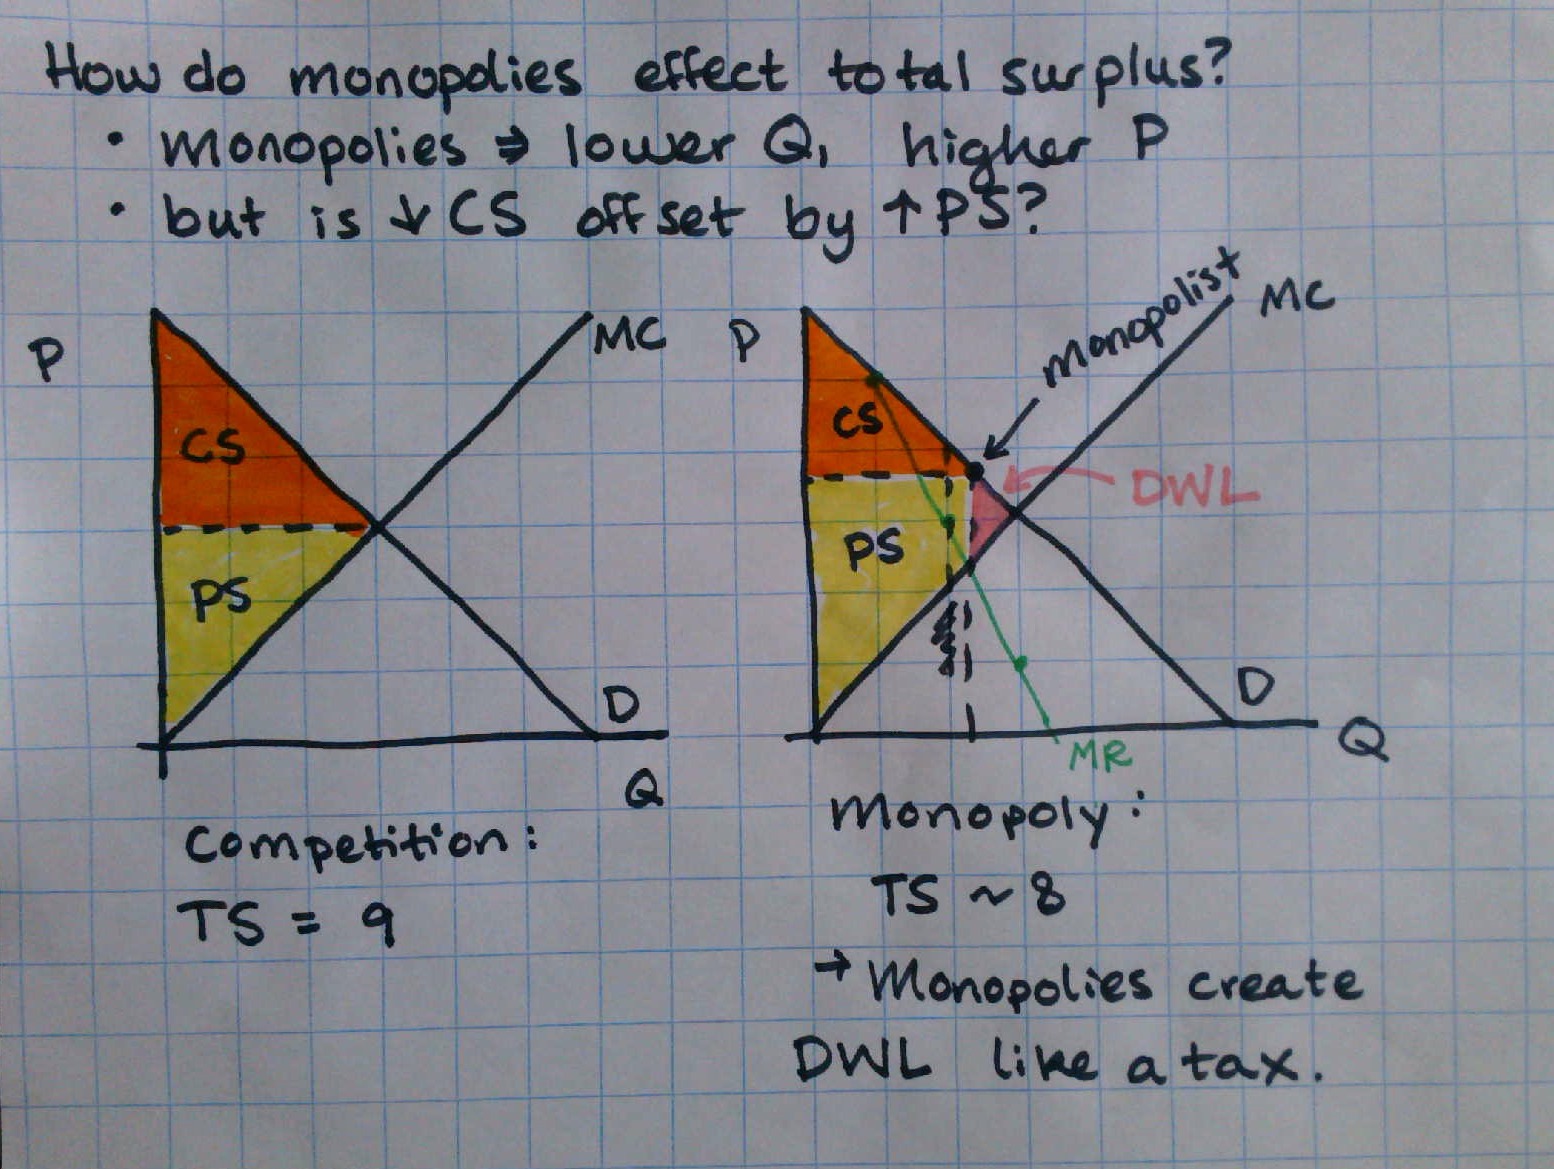 How do monopolies effect total surplus?
• monopolies ⇒ lower Q, higher P
• but is ↓ CS offset by ↑ PS?
P
MC
CS
PS
D
Q
P
monopolist
MC
CS
DWL
PS
D
Q
MR
Competition:
TS = 9
Monopoly:
TS ~ 8
→ Monopolies create
DWL like a tax.